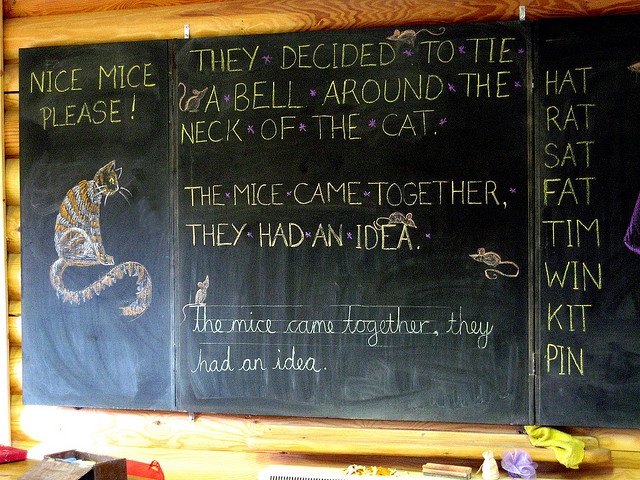 NICE MICE
PLEASE!
THEY DECIDED TO TIE
A BELL AROUND THE
NECK OF THE CAT.
THE MICE CAME TOGETHER,
THEY HAD AN IDEA.
the mice came together, they
had an idea.
HAT
RAT
SAT
FAT
TIM
WIN
KIT
PIN